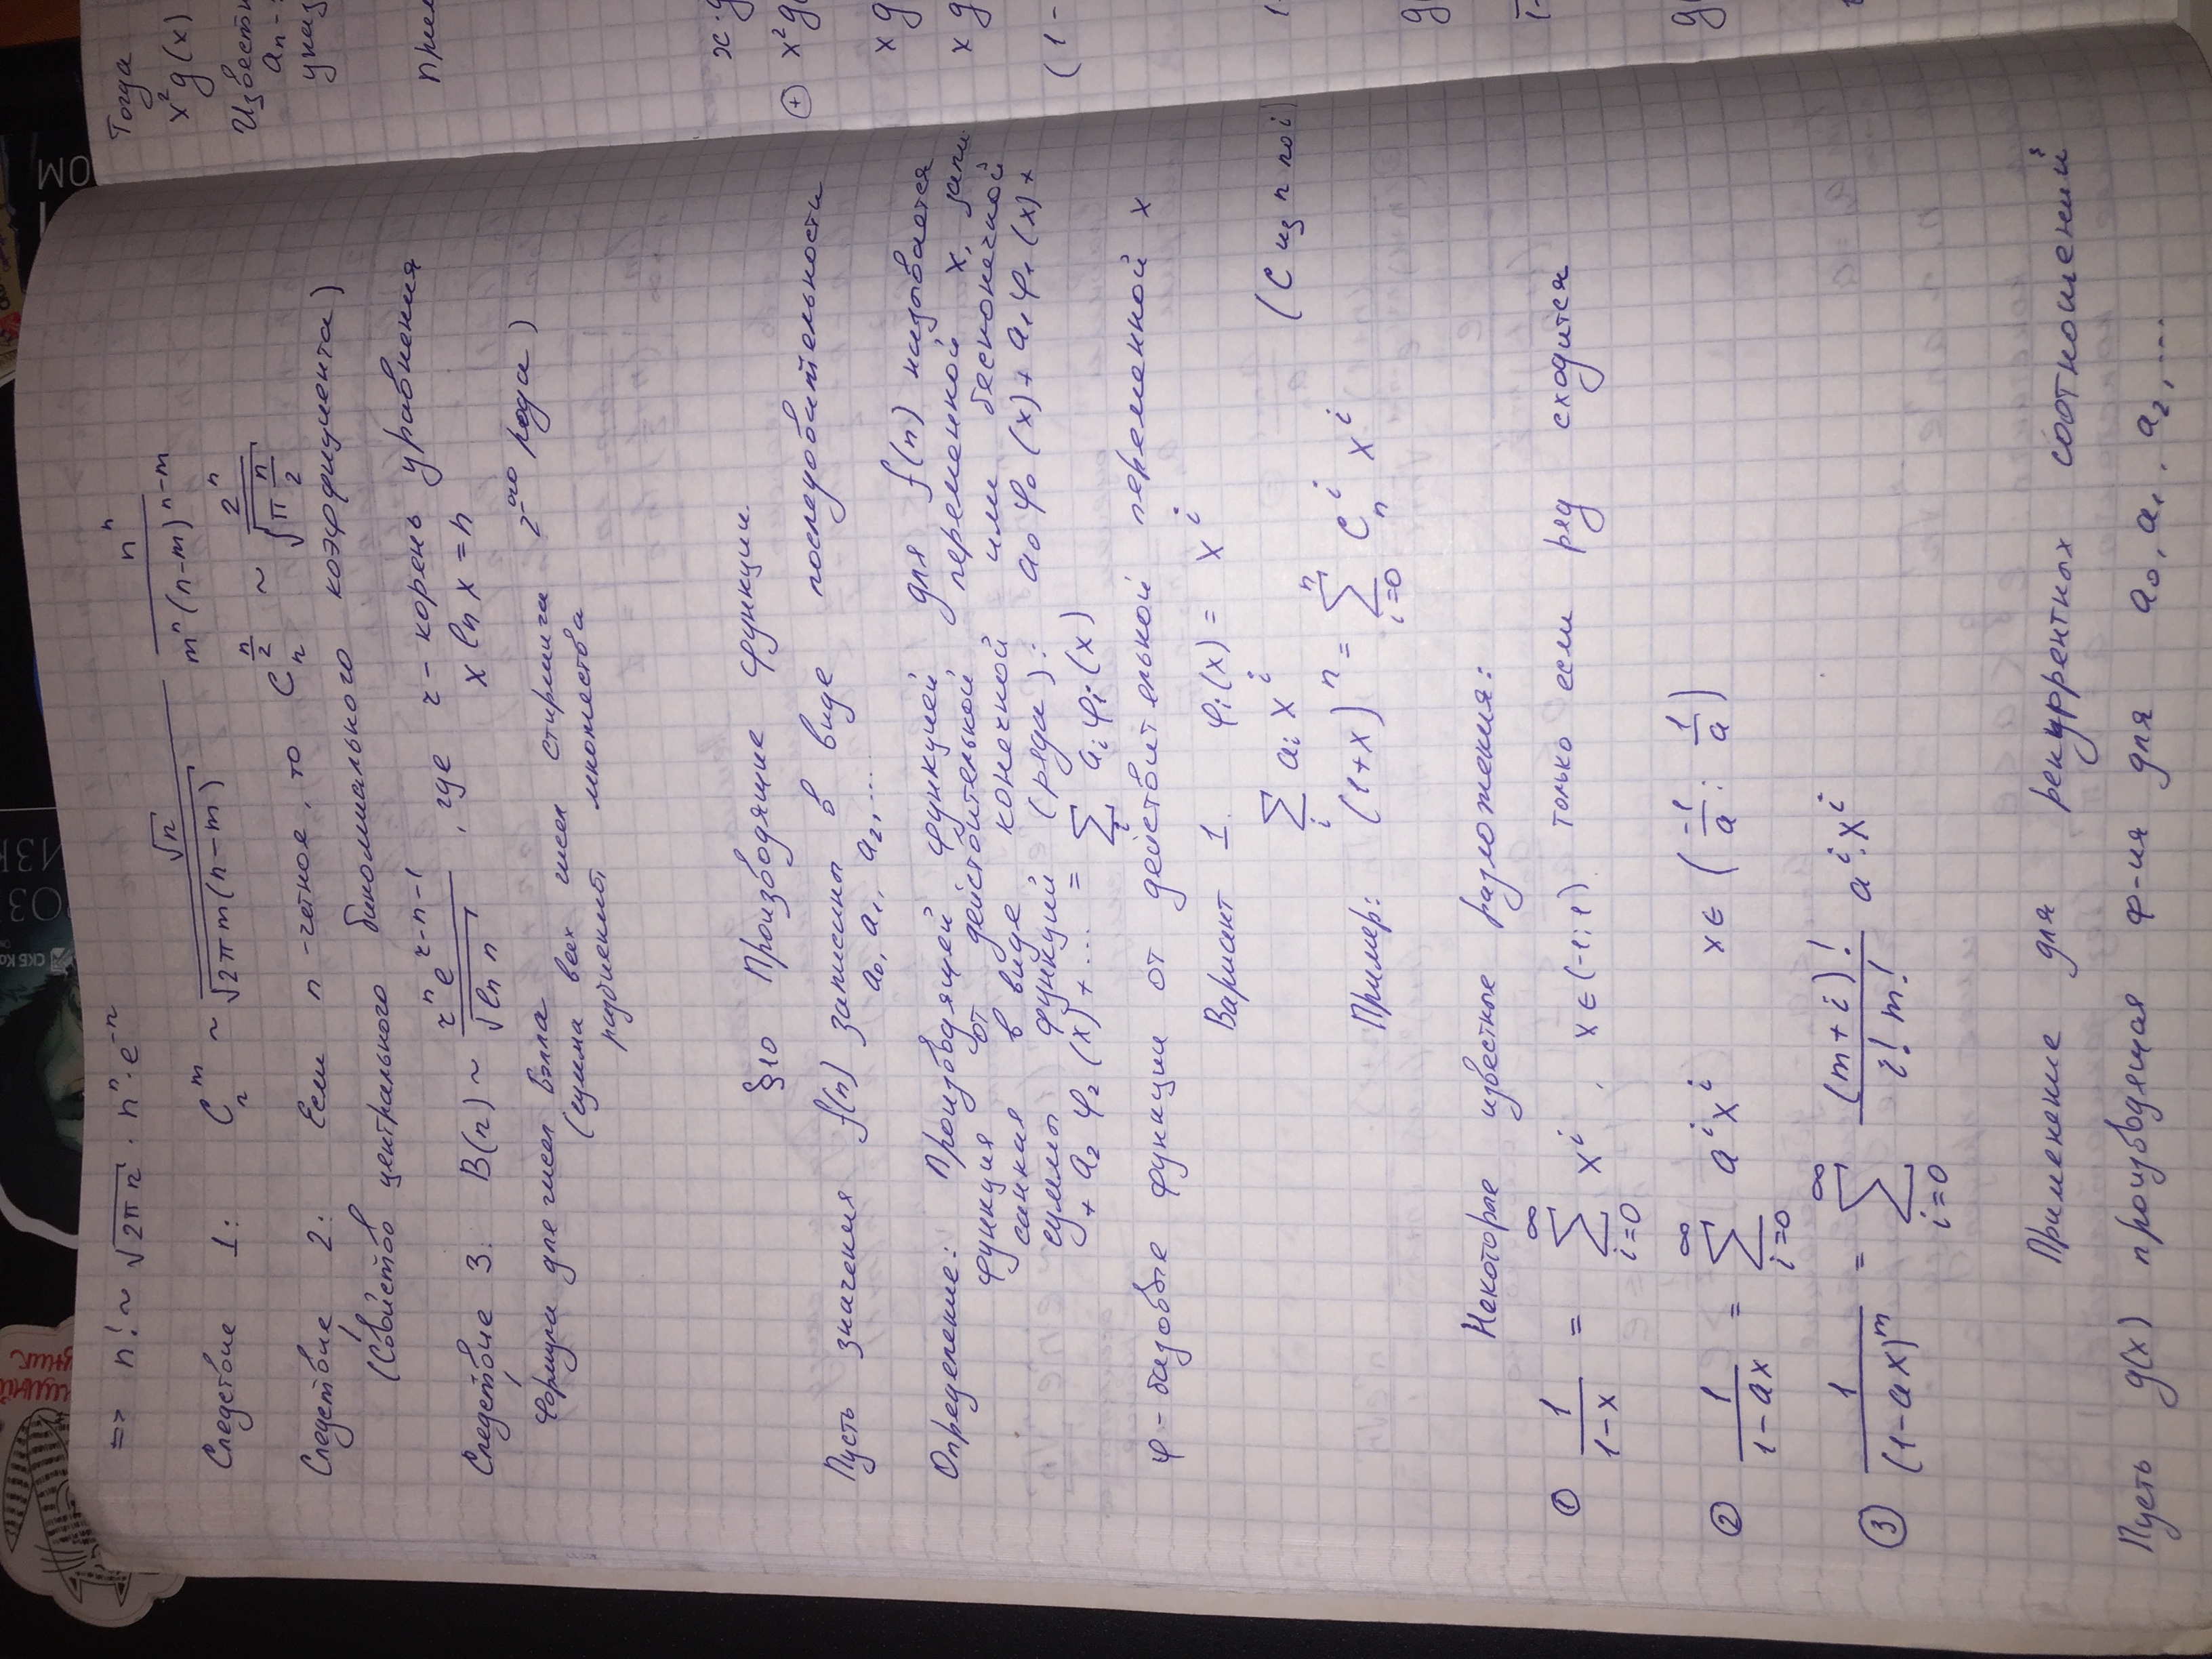 СКБ Ко
ОМ
=> n! ~ √(2πn) · nⁿ · e⁻ⁿ
Следствие 1: C_n^m ~ √n / √(2πm(n-m)) · nⁿ / (mⁿ(n-m)^(n-m))
Следствие 2: Если n - четное, то C_n^(n/2) ~ 2ⁿ / √(π n/2)
(Свойство центрального биномиального коэффициента)
Следствие 3: B(n) ~ rⁿ e^(r-n-1) / √(ln n), где r - корень уравнения
x ln x = n
Формула для чисел Бэлла
(сумма всех чисел Стирлинга 2-ого рода)
разбиений множества
§10 Производящие функции.
Пусть значения f(n) записаны в виде последовательности
a₀, a₁, a₂, ...
Определение: Производящей функцией для f(n) называется
функция от действительной переменной x, запи
санная в виде конечной или бесконечной
суммы функций (ряда): a₀φ₀(x) + a₁φ₁(x) +
+ a₂φ₂(x) + ... = Σ_i a_i φ_i(x)
φ - базовые функции от действительной переменной x
Вариант 1. φ_i(x) = x^i
Σ_i a_i x^i
(C из n по i)
Пример: (1+x)ⁿ = Σ_(i=0)^n C_n^i x^i
Некоторые известные разложения:
① 1/(1-x) = Σ_(i=0)^∞ x^i, x∈(-1;1) только если ряд сходится
② 1/(1-ax) = Σ_(i=0)^∞ a^i x^i x∈(-1/a; 1/a)
③ 1/(1-ax)^m = Σ_(i=0)^∞ (m+i)!/(i! m!) a^i·x^i
Применение для рекуррентных соотношений
Пусть g(x) производящая ф-ия для a₀, a₁, a₂, ...
Тогда
x²g(x)
x·g
⊕ x²g(
x g
x g
(1-